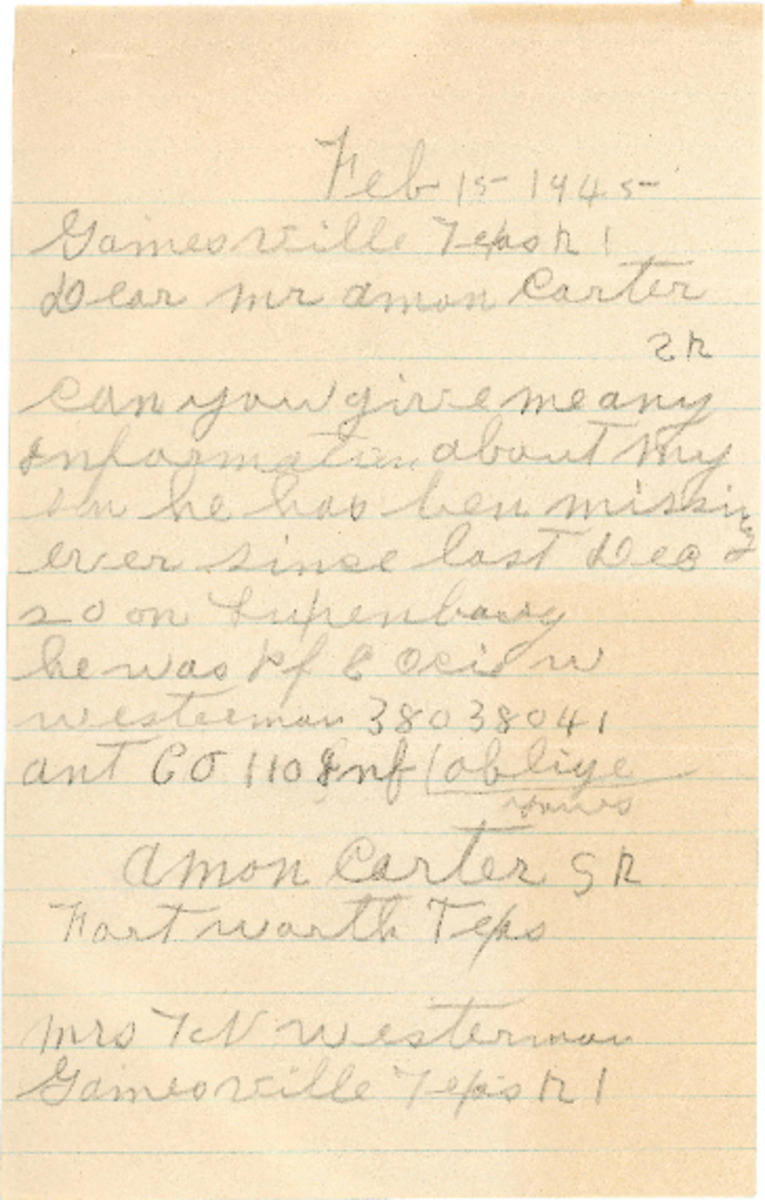 Feb 15 1945
Gainesville Texas R 1
Dear Mr Amon Carter
SR
can you give me any
Information about My
son he has ben missing
ever since last Dec
20 on Luxenbourg
he was Pf C Ocie W
Westerman 38038041
ant CO 110 Inf oblige
yours
Amon Carter SR
Fort Worth Texas
Mrs T N Westerman
Gainesville Texas R 1